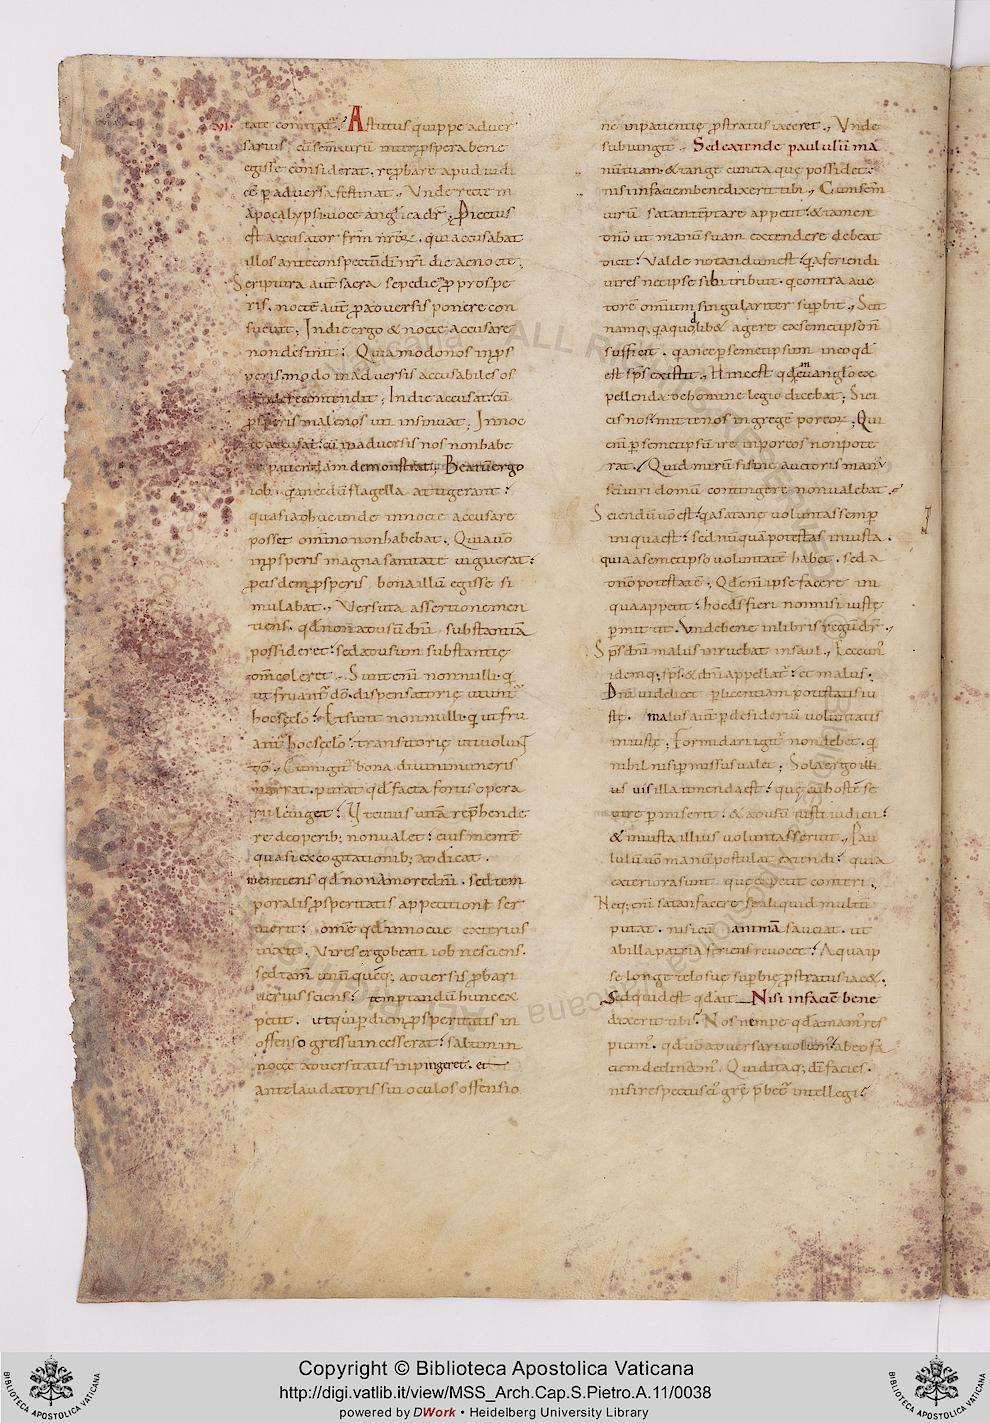 VI. tate coniciat͛. Astutus quippe aduer
sarius, cū semet uirū inter prospera bene
egisse considerat, rep̄bare apud iudi
cē p aduersa festinat. Unde recte in
apocalypsi uoce anglica dr̄; Piectus
est accusator frm̄ nrōꝝ. qui accusabat
illos ante conspectū dī nr̄i die ac nocte;
Scriptura autē sacra sepe diē ꝓ prospe
ris. noctē autē pro aduersis ponere con
sueuit. In die ergo & nocte accusare
non desinit; Quia modo nos in ꝓs
peris modo in aduersis accusabiles os
tendere contendit; In die accusat: cū
ꝓsperis male nos uti insinuat; In noc
te accusat: cū in aduersis nos non habe
re patientiam demonstrat; Beatū ergo
iob. q̄a necdū flagella attigerant:
quasi adhuc unde in nocte accusare
posset omino non habebat. Quia uō
in ꝓsperis magna sanctitate uiguerat:
pro eisdem ꝓsperis bona illū egisse si
mulabat. Versuta assertione men
tiens. qd̄ non ad usū dn̄i substantiā
possideret: sed ad usum substantię
dm̄ coleret. Sunt enī nonnulli. q
ut fruant͛ dō. dispensatorię utunt͛
hoc sęclo: Et sunt nonnulli. q̄ ut fru
ant͛ hoc sęclo: transitorię uti uolunt
dō. Cū igit͛ bona diuini muneris
narrat. putat qd̄ facta fortis opera
rii leuiget: Ut cuius uitā rep̄hende
re de operib; non ualet: eius mentē
quasi ex cogitationib; addicat.
mentiens qd̄ non amore dn̄i. sed tem
poralis ꝓsperitatis appetitioni ser
uierit: omnē qd̄ innocue exterius
uixit. Vires ergo beati iob nesciens.
sed tam̄ unūquēq; aduersis ꝓbari
uerius sciens: temptandū hunc ex
petit. ut qui p diem ꝓsperitatis in
offenso gressu incesserat: saltim in
nocte aduersitatis inpingeret. et
ante laudatoris sui oculos offensio
ne inpatientię ꝓstratus iaceret. Unde
subiungit. Sed extende paululū ma
nū tuam & tange cuncta quę possidet:
nisi in faciem benedixerit tibi. Cum scm̄
uirū satan tēptare appetit: & tamen
dn̄o ut manū suam extendere debeat
dicit: Valde notandum est: q̄a feriendi
uires nec ipse sibi tribuit. q contra auc
torē omniū singulariter supbit. Scit
namq; q̄a quodlib& agere ex semetipso n̄
sufficit. q̄a nec p semetipsum in eo qd̄
est sp̄s existit. Hinc est qd̄ in euanglo ex
pellenda de homine legio dicebat; Si ei
cis nos: mitte nos in gregē porcoꝝ. Qui
enī p semetipsū ire in porcos non pote
rat. Quid mirū si sine auctoris manu
sc̄i uiri domū contingere non ualebat.
Sciendū uō est: q̄a satanę uoluntas semp
iniqua est: sed nūquā potestas iniusta.
quia a semetipso uoluntatē habet. sed a
dn̄o potestatē. Qd̄ enī ipse facere ini
qua appetit: hoc ds̄ fieri non nisi iustę
pmittit. Unde bene in libris regū dr̄.
Sp̄s dn̄i malus irruebat in saul. Ecce un͛
idemq; sp̄s. & dn̄i appellat͛: et malus.
Dn̄i uidelicet p licentiam potestatis iu
stę. malus autē p desideriū uoluntatis
iniustę; Formidari igit͛ non debet. q̄
nihil nisi pmissus ualet; Sola ergo illi
us uis illa timenda est: quę cū hostē sę
uire pmiserit: & ad usū iusti iudicii:
& iniusta illius uoluntas seruit. Pau
lulū uō manū postulat extendi: quia
exteriora sunt quę expetit conteri.
Neq; enī satan facere se aliquid multū
putat. nisi cū in animā sauciat. ut
ab illa patria feriens reuocet: A qua ip
se longe telo suę supbię ꝓstratus iac&.
Sed quid est qd̄ ait Nisi in faciē bene
dixerit tibi: Nos nempe qd̄ amam͛ res
picim͛. qd̄ uō aduersari uolum͛: ab eo fa
ciem declinam͛. Quid itaq; dī facies.
nisi respectus ei͛ grę p̄bet͛ intellegi:
Copyright © Biblioteca Apostolica Vaticana
http://digi.vatlib.it/view/MSS_Arch.Cap.S.Pietro.A.11/0038
powered by DWork • Heidelberg University Library
BIBLIOTECA APOSTOLICA VATICANA
BIBLIOTECA APOSTOLICA VATICANA